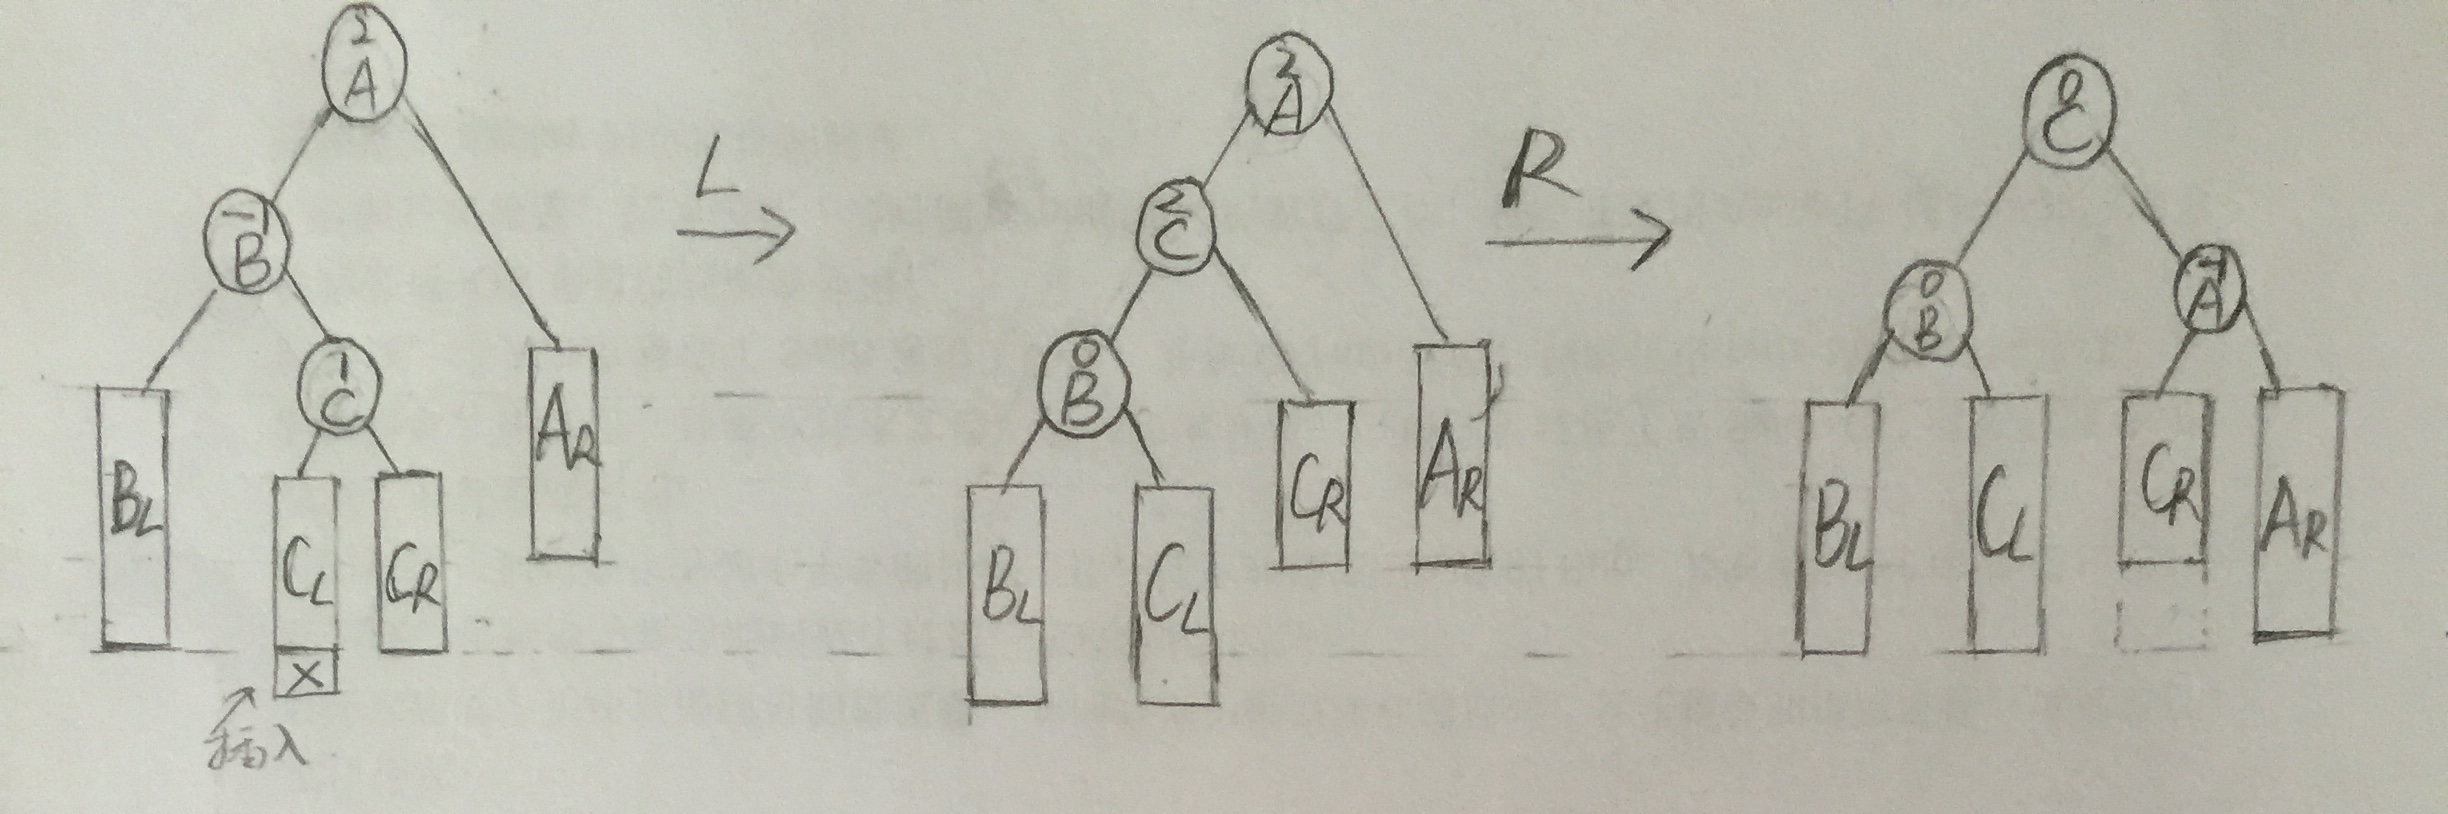 2
A
-1
B
1
C
BL
CL
CR
AR
X
插入
L
2
A
2
C
0
B
BL
CL
CR
AR
R
0
C
0
B
-1
A
BL
CL
CR
AR